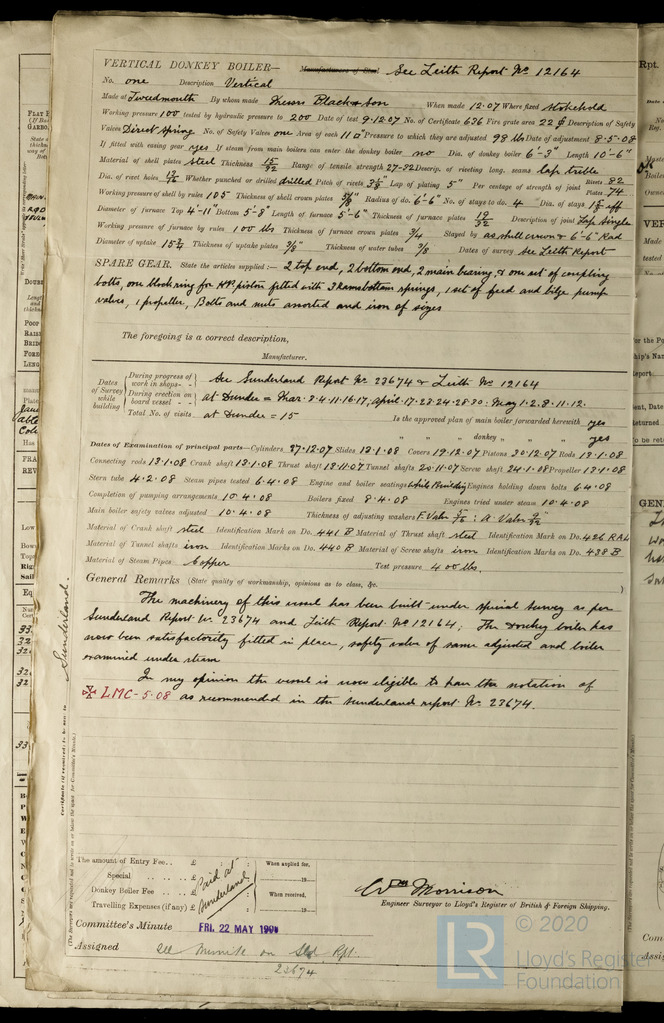 VERTICAL DONKEY BOILER— Manufacturers of Steel See Leith Report No 12164
No. one Description Vertical
Made at Tweedmouth By whom made Messrs Black & Son When made 12.07 Where fixed Stokehold
Working pressure 100 tested by hydraulic pressure to 200 Date of test 9.12.07 No. of Certificate 636 Fire grate area 22 Description of Safety
Valves Direct Spring No. of Safety Valves one Area of each 11 Pressure to which they are adjusted 98 lbs Date of adjustment 8.5.08
If fitted with easing gear yes If steam from main boilers can enter the donkey boiler no Dia. of donkey boiler 6'-3" Length 10'-6"
Material of shell plates steel Thickness 15/32 Range of tensile strength 27-32 Descrip. of riveting long. seams lap treble
Dia. of rivet holes Whether punched or drilled drilled Pitch of rivets Lap of plating 5" Per centage of strength of joint Rivets 82 Plates 74
Working pressure of shell by rules 105 Thickness of shell crown plates Radius of do. 6'-6" No. of stays to do. 4 Dia. of stays
Diameter of furnace Top 4'-11" Bottom 5'-8" Length of furnace 5'-6" Thickness of furnace plates 19/32 Description of joint Lap Single
Working pressure of furnace by rules 100 lbs Thickness of furnace crown plates 3/4 Stayed by as shell crown & 6'-6" Rad
Diameter of uptake Thickness of uptake plates 3/8" Thickness of water tubes Dates of survey See Leith Report
SPARE GEAR. State the articles supplied:— 2 top end, 2 bottom end, 2 main bearing, & one set of coupling
bolts, one block ring for H.P. piston fitted with 3 Ramsbottom springs, 1 set of feed and bilge pump
valves, 1 propeller, Bolts and nuts assorted and iron of sizes
The foregoing is a correct description,
Manufacturer.
Dates of Survey while building
During progress of work in shops- - See Sunderland Report No 23674 & Leith No 12164
During erection on board vessel - - at Dundee = Mar. 3.4.11.16.17, April 17.23.24.28.30: May 1.2.8.11.12.
Total No. of visits at Dundee = 15 Is the approved plan of main boiler forwarded herewith yes
" " " donkey " " " yes
Dates of Examination of principal parts—Cylinders 27.12.07 Slides 13.1.08 Covers 19.12.07 Pistons 30.12.07 Rods 13.1.08
Connecting rods 13.1.08 Crank shaft 13.1.08 Thrust shaft 13.11.07 Tunnel shafts 20.11.07 Screw shaft 24.1.08 Propeller 13.1.08
Stern tube 4.2.08 Steam pipes tested 6.4.08 Engine and boiler seatings while building Engines holding down bolts 6.4.08
Completion of pumping arrangements 10.4.08 Boilers fixed 8.4.08 Engines tried under steam 10.4.08
Main boiler safety valves adjusted 10.4.08 Thickness of adjusting washers F. Valve : A. Valve
Material of Crank shaft steel Identification Mark on Do. 441 B Material of Thrust shaft steel Identification Mark on Do. 426 RAL
Material of Tunnel shafts iron Identification Marks on Do. 440 B Material of Screw shafts iron Identification Marks on Do. 438 B
Material of Steam Pipes Copper Test pressure 400 lbs.
General Remarks (State quality of workmanship, opinions as to class, &c.
The machinery of this vessel has been built under special survey as per
Sunderland Report No 23674 and Leith Report No 12164; The Donkey boiler has
now been satisfactorily fitted in place, safety valve of same adjusted and boiler
examined under steam
In my opinion the vessel is now eligible to have the notation of
LMC-5.08 as recommended in the Sunderland report No 23674.
Sunderland.
Certificate (if required) to be sent to
(The Surveyors are requested not to write on or below the space for Committee's Minute.)
The amount of Entry Fee.. £ : : When applied for,
Special .. .. £ : : 19
Donkey Boiler Fee .. .. £ : : When received,
Travelling Expenses (if any) £ : : 19
Paid at Sunderland
Wm Morrison
Engineer Surveyor to Lloyd's Register of British & Foreign Shipping.
Committee's Minute FRI. 22 MAY 1908
Assigned See Minute on Sld Rpt.
23674
© 2020
LR
Lloyd's Register
Foundation